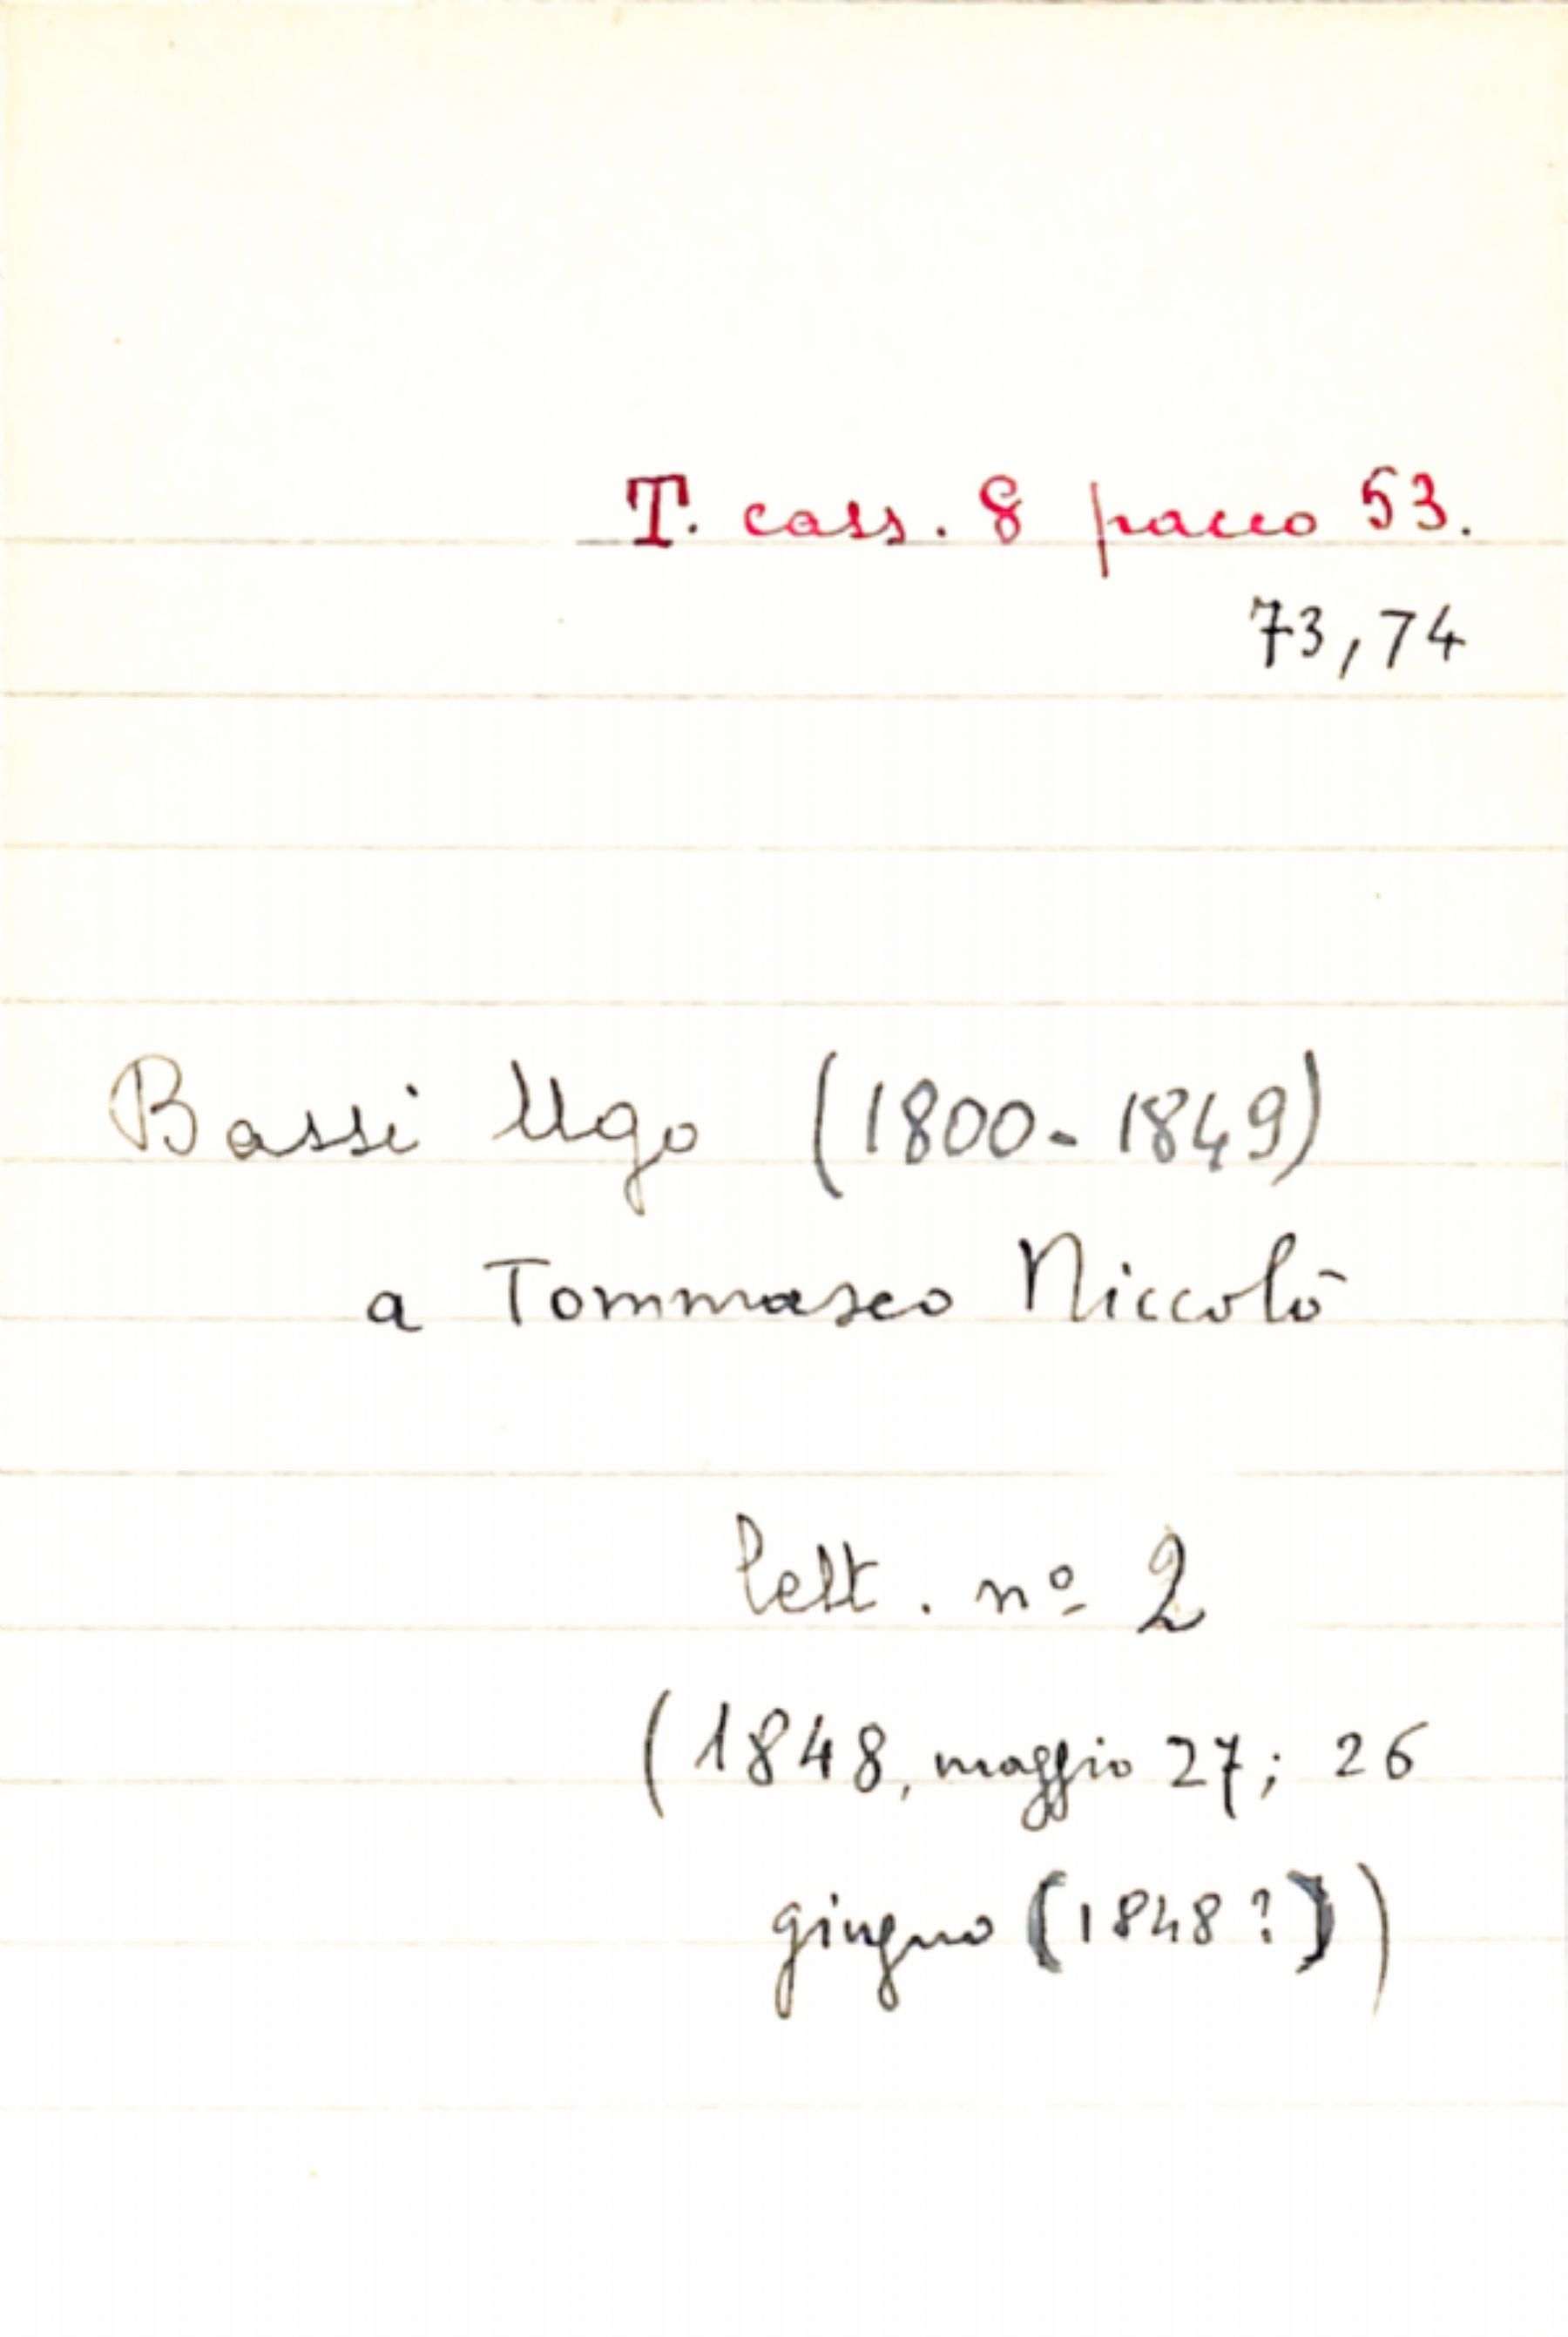 T. cass. 8 pacco 53.
73, 74
Bassi Ugo (1800-1849)
a Tommaseo Niccolò
lett. nº 2
(1848, maggio 27; 26
giugno (1848?))